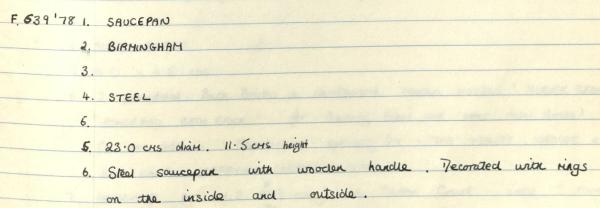 F.639'78 1. SAUCEPAN
2. BIRMINGHAM
3.
4. STEEL
6.
5. 23.0 cms diam. 11.5 cms height
6. Steel saucepan with wooden handle. Decorated with rings
on the inside and outside.